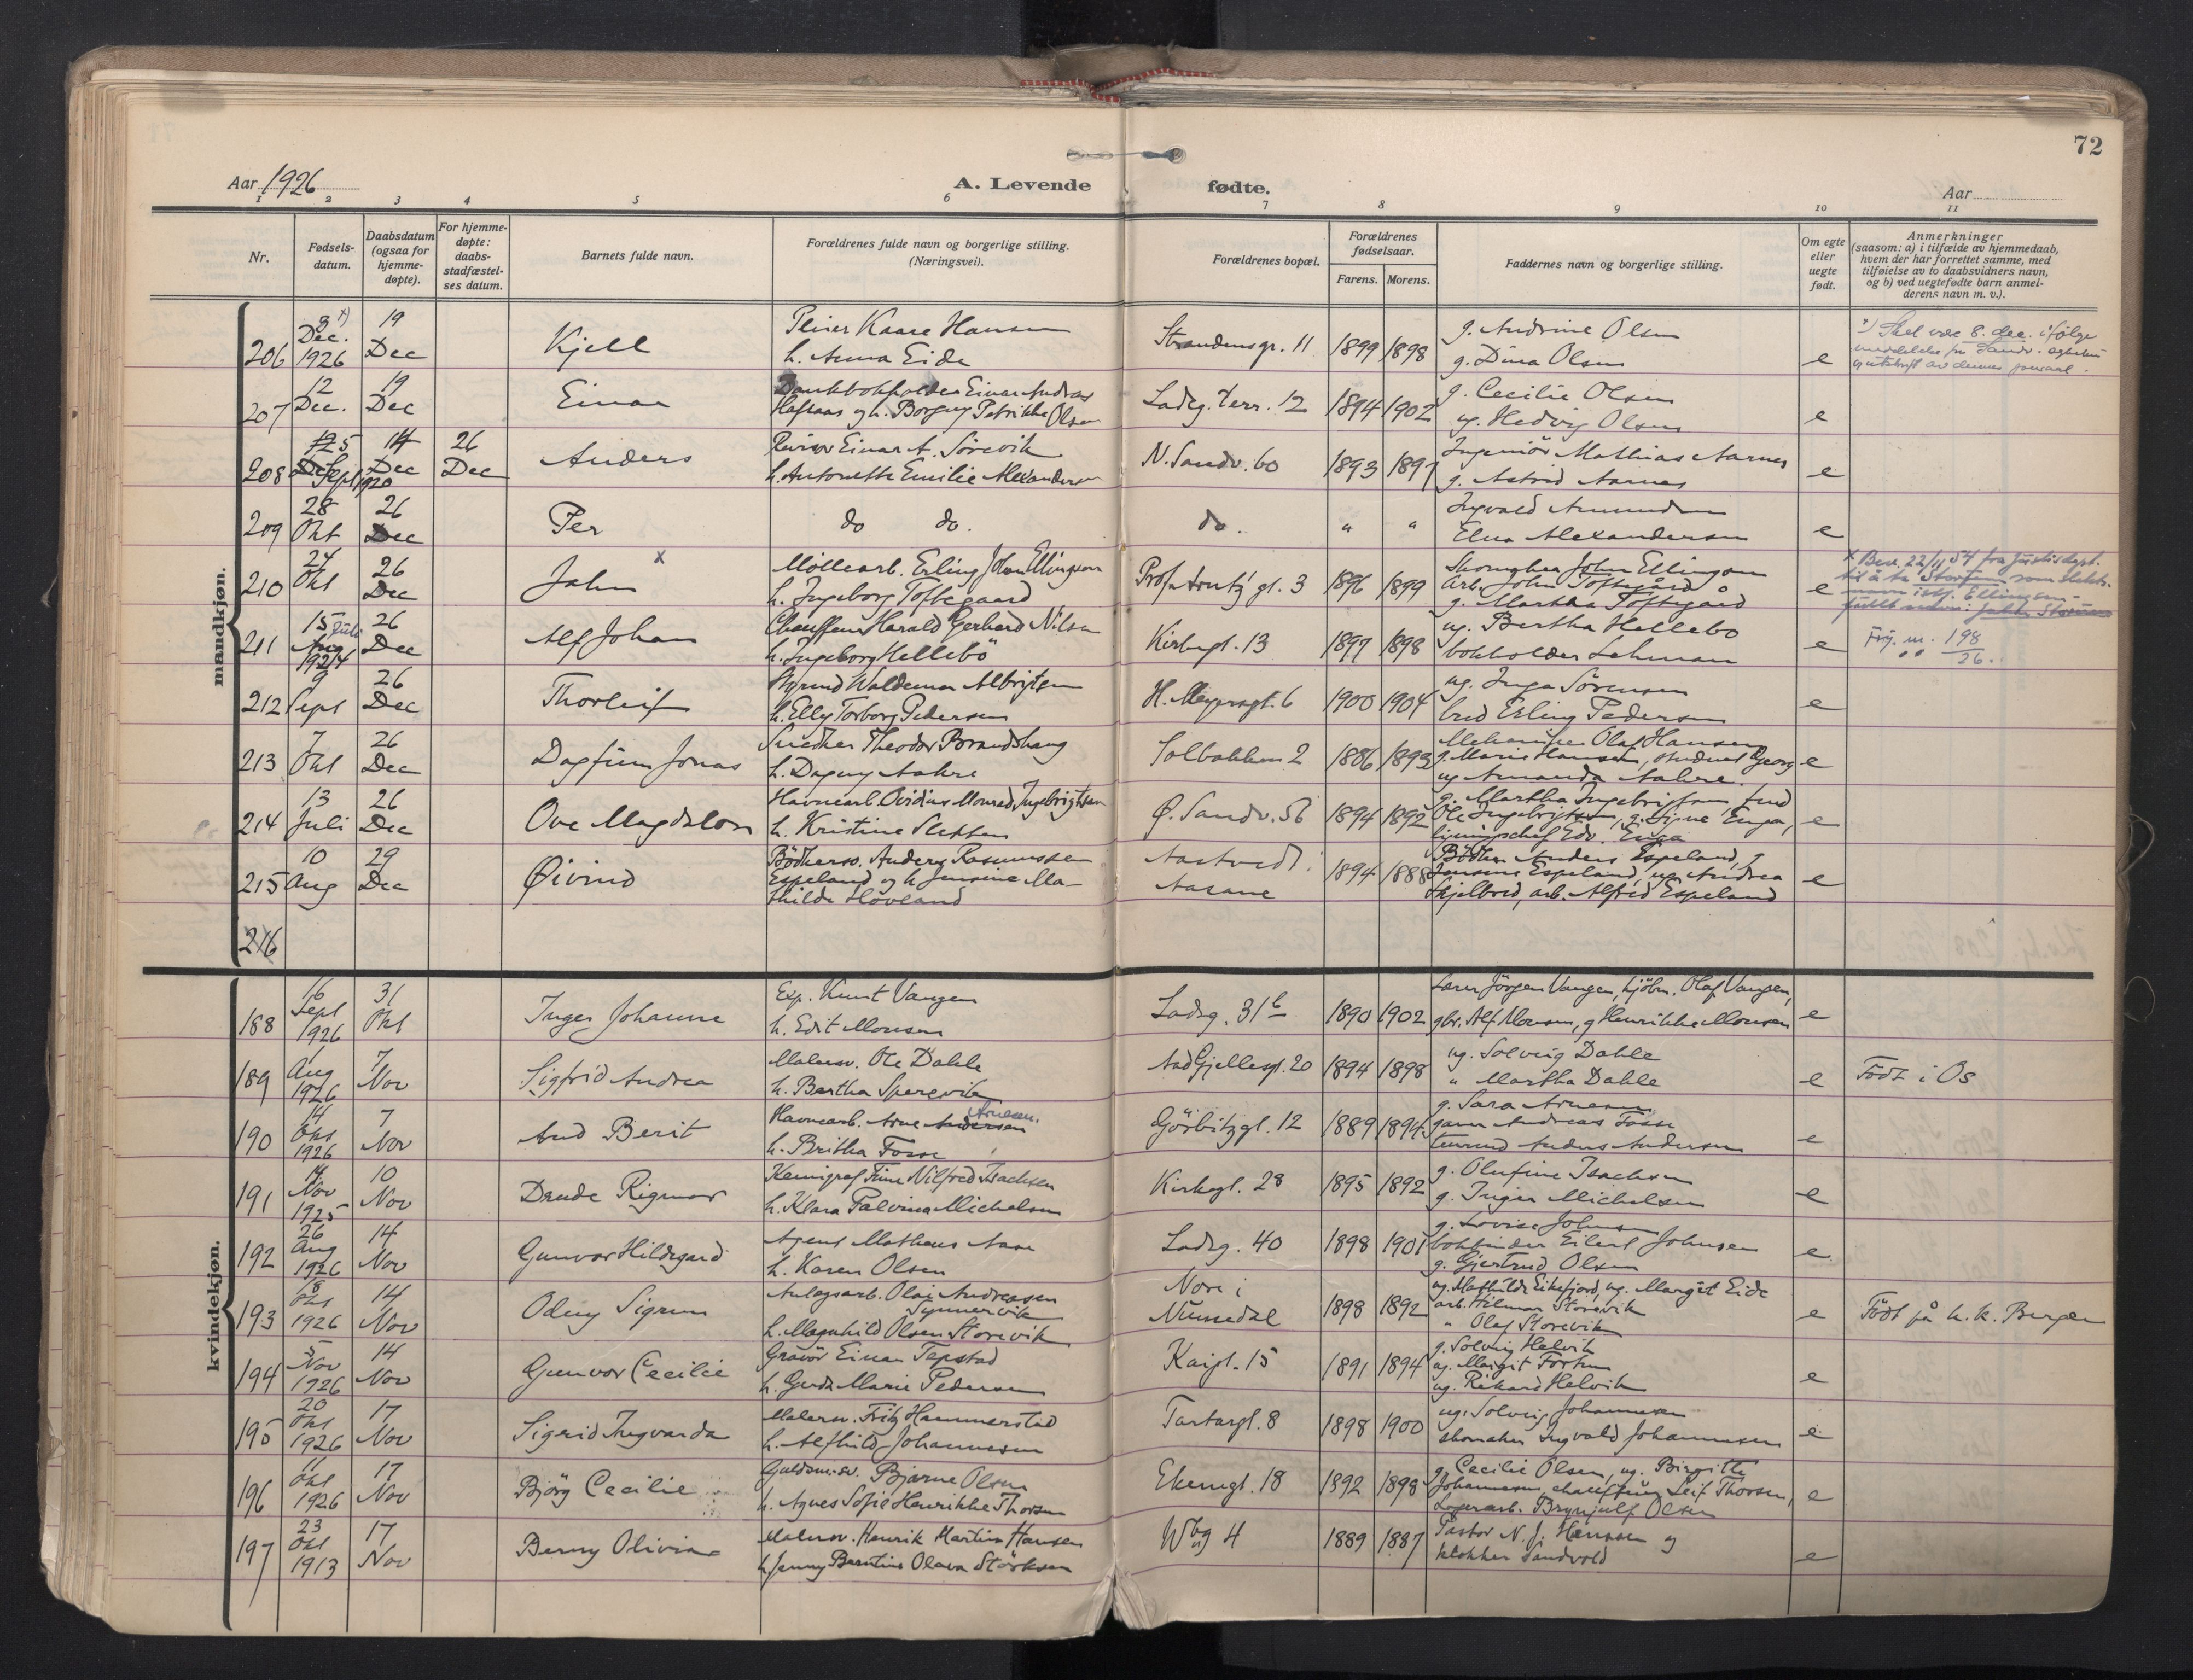 72
Aar 1926
A. Levende fødte.
Aar
1 2 3 4 5 6 7 8 9 10 11
Nr.
Fødsels-
datum.
Daabsdatum
(ogsaa for
hjemme-
døpte).
For hjemme-
døpte:
daabs-
stadfæstel-
ses datum.
Barnets fulde navn.
Forældrenes fulde navn og borgerlige stilling.
(Næringsvei).
Forældrenes bopæl.
Forældrenes
fødselsaar.
Farens. Morens.
Faddernes navn og borgerlige stilling.
Om egte
eller
uegte
født.
Anmerkninger
(saasom: a) i tilfælde av hjemmedaab,
hvem der har forrettet samme, med
tilføielse av to daabsvidners navn,
og b) ved uegtefødte barn anmel-
derens navn m. v.).
mandkjøn.
206
Dec.
1926
19
Dec
Kjell
Kaare Hansen
h. Anna Eide
Strandensgr. 11
1899 1898
g. Andrine Olsen
g. Dina Olsen
e
x) Skal være 8. dec. ifølge
207
12
Dec.
19
Dec
Einar
Bankbokholder Einar Andreas
Haftaas og h. Borgny Petrikke Olsen
Ladeg. terr. 12
1894 1902
g. Cecilie Olsen
ug. Hedvig Olsen
e
208
5
Sept 1920
14
Dec
26
Dec
Anders
Revisor Einar A. Sörevik
h. Antonette Emilie Alexandersen
N. Sandv. 60
1893 1897
Ingeniör Mathias Aarnes
g. Astrid Aarnes
e
209
28
Okt
26
Dec
Per
do do.
do.
" "
Ingvald Amundsen
Elna Alexandersen
e
210
24
Okt
26
Dec
Jahn x
Möllearb. Erling Johan Ellingsen
h. Ingeborg Toftegaard
Prof. gt. 3
1896 1899
John Ellingsen
arb. John Toftegård
g. Martha Toftegård
e
x Bev. 22/11 54 fra Justisdept.
til å ta Storfum som slekts-
navn istf. Ellingsen -
211
15 Juli
1924
26
Dec
Alf Johan
Chauffeur Harald Gerhard Nilsen
h. Ingeborg Hellebö
Kirkegt. 13
1897 1898
ug. Bertha Hellebo
bokholder Lehman
e
198
26.
212
9
Sept
26
Dec
Thorleif
Waldemar Albrigtsen
h. Elly Torborg Pedersen
H. Meyersgt. 6
1900 1904
ug. Inga Sörensen
Erling Pedersen
e
213
7
Okt
26
Dec
Dagfinn Jonas
Snedker Theodor Brandshaug
h. Dagny Aakre
Solbakken 2
1886 1893
Mekaniker Olaf Hansen
g. Marie Hansen, student Georg
ug Amanda Aakre.
e
214
13
Juli
26
Dec
Ove Magdalon
Havnearb. Ovidius Monrad Ingebrigtsen
h. Kristine Sletten
Ø. Sandv. 56
1894 1892
g. Martha Ingebrigtsen
Ole Ingebrigtsen, g. Signe Enga,
ligningschef Edv. Enga
e
215
10
Aug
29
Dec
Øivind
Bödkersv. Anders Rasmussen
Espeland og h. Jensine Ma-
thilde Hovland
Aastvedt i
Aasane
1894 1888
Bödker Anders Espeland, g.
Jensine Espeland, ug. Andrea
Skjelbred, arb. Alfred Espeland
e
216
kvindekjøn.
188
16
Sept
1926
31
Okt
Inger Johanne
Exp. Knut Vangen
h. Edit Monsen
Ladeg. 31b
1890 1902
Lærer Jörgen Vangen, kjöbm. Olaf Vangen,
gbr. Alf Monsen, g Henrikke Monsen
e
189
1
Aug
1926
7
Nov
Sigfrid Andrea
Malersv. Ole Dahle
h. Bertha Sperevik
Aad Gjellesgt. 20
1894 1898
ug. Solveig Dahle
" Martha Dahle
e
Födt i Os
190
14
Okt
1926
7
Nov
Aud Berit
Havnearb. Arne Andersen Arnesen.
h. Britha Fosse
Görbitzgt. 12
1889 1894
g. Sara Arnesen
Andreas Fosse
Anders Andersen
e
191
14
Nov
1925
10
Nov
Drude Rigmor
Kemigraf Finn Nilfred Isachsen
h. Klara Palvina Michelsen
Kirkegt. 28
1895 1892
g. Olufine Isachsen
g. Inger Michelsen
e
192
26
Aug
1926
14
Nov
Gunvor Hildegard
Agent Matheus Aase
h. Karen Olsen
Ladeg. 40
1898 1901
g. Lovise Johnsen
bokbinder Eilert Johnsen
g. Gjertrud Olsen
e
193
18
Okt
1926
14
Nov
Odny Sigrun
Anlægsarb. Olai Andreasen
Synnervik
h. Magnhild Olsen Storevik
Nore i
Numedal
1898 1892
ug. Mathilde Eikefjord, ug. Margit Eide
arb. Hilmar Storevik
" Olaf Storevik
e
Födt på k. k. Bergen
194
5
Nov
1926
14
Nov
Gunvor Cecilie
Gravör Einar Tepstad
h. Gerda Marie Pedersen
Kaigt. 15
1891 1894
g. Solveig Helvik
ug. Margit Fortun
ug. Rikard Helvik
e
195
20
Okt
1926
17
Nov
Sigrid Ingvarda
Malersv. Fritz Hammerstad
h. Alfhild Johannesen
Tartargt. 8
1898 1900
ug. Solveig Johannesen
skomaker Ingvald Johannesen
e
196
11
Okt
1926
17
Nov
Björg Cecilie
Guldsm.sv. Bjarne Olsen
h. Agnes Sofie Henrikke Thorsen
Ekerngt. 18
1892 1898
g. Cecilie Olsen, ug. Birgitte
Johannesen, chauffeur Leif Thorsen,
Lagerarb. Brynjulf Olsen
e
197
23
Okt
1913
17
Nov
Berny Olivia
Malersv. Henrik Martin Hansen
h. Jenny Berntine Olava Störksen
Wbg 4
1889 1887
Pastor N. J. Hanssen og
klokker Sandvold
e